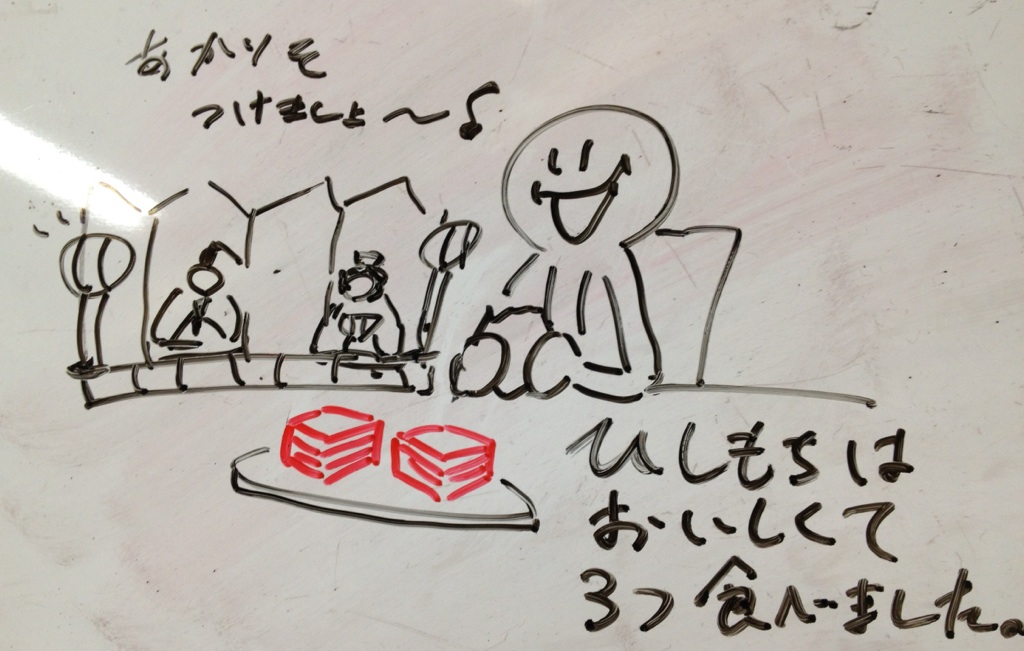 あかりを
つけましょ〜♪
ひしもちは
おいしくて
3つ食べました。